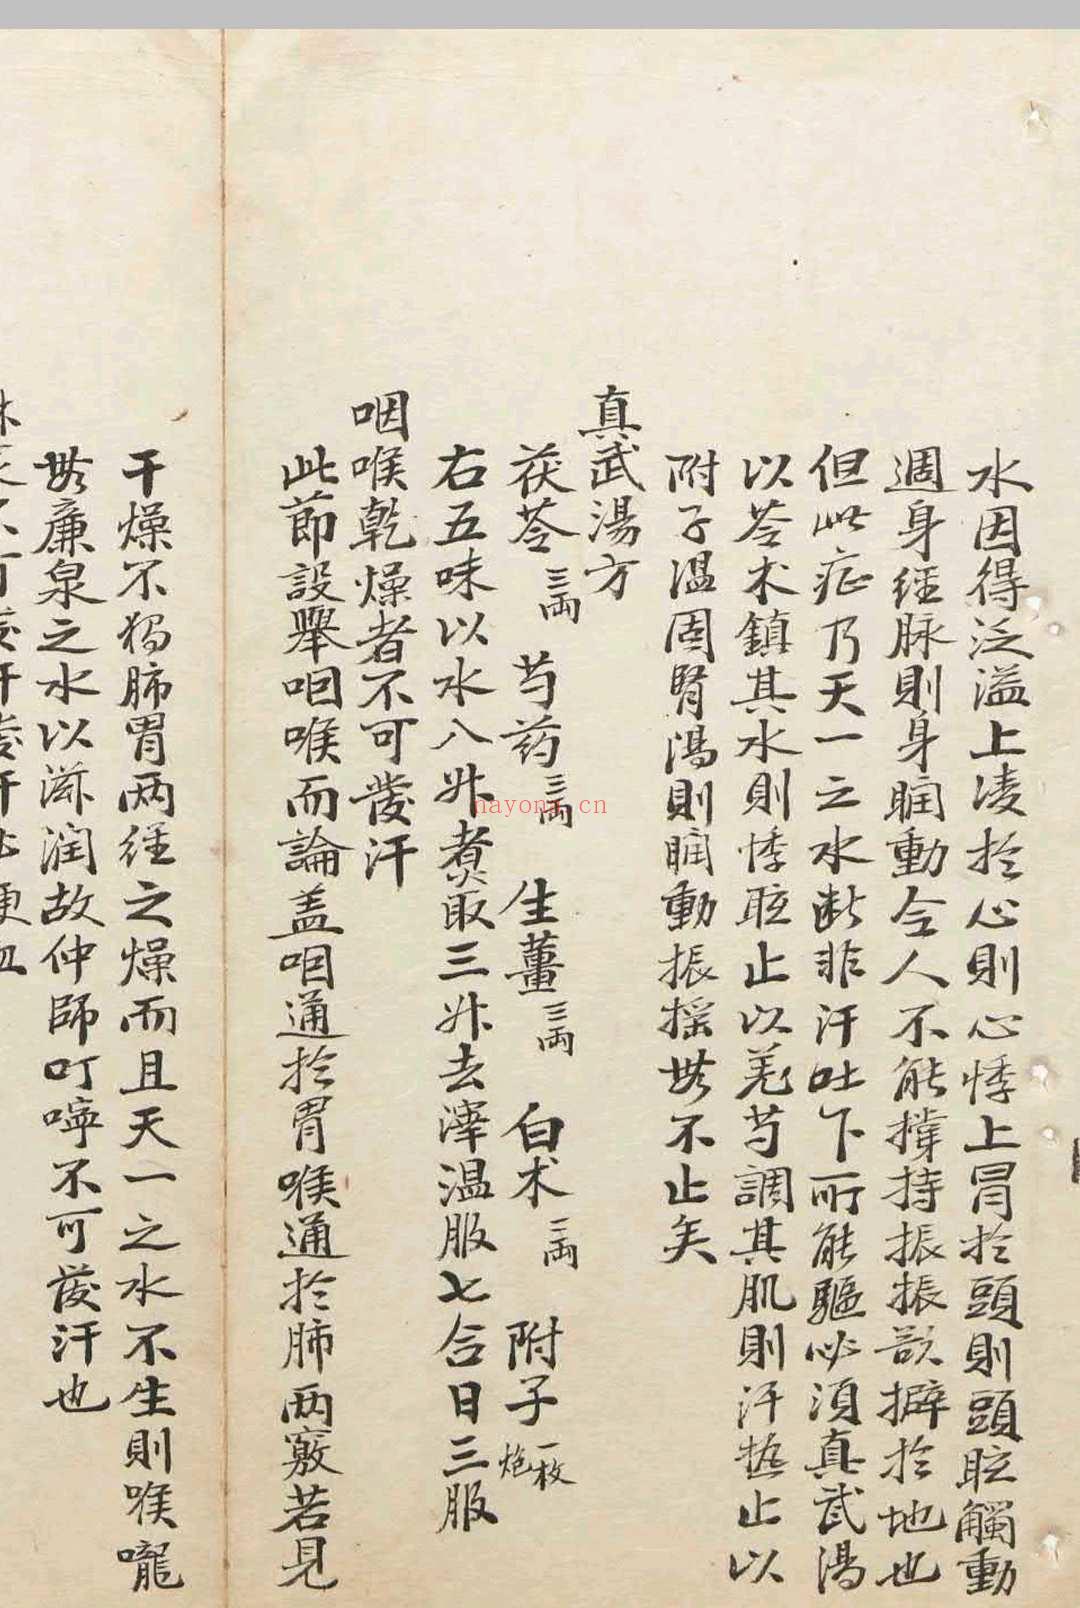 水因得泛溢上凌扵心則心悸上冒扵頭則頭眩觸動
週身経脉則身瞤動令人不能撑持振振欲擗扵地也
但此症乃天一之水断非汗吐下所能驅必湏真武湯
以苓术鎮其水則悸眩止以羌芍調其肌則汗熱止以
附子温固腎湯則瞤動振揺無不止矣
真武湯方
茯苓三両 芍药三両 生薑三両 白术二両 附子一枚炮
右五味以水八升煑取三升去滓温服七合日三服
咽喉乾燥者不可發汗
此節設舉咽喉而論盖咽通扵胃喉通扵肺两竅若見
干燥不獨肺胃两経之燥而且天一之水不生則喉嚨
無廉泉之水以滋润故仲師叮嚀不可發汗也
nayona.cn